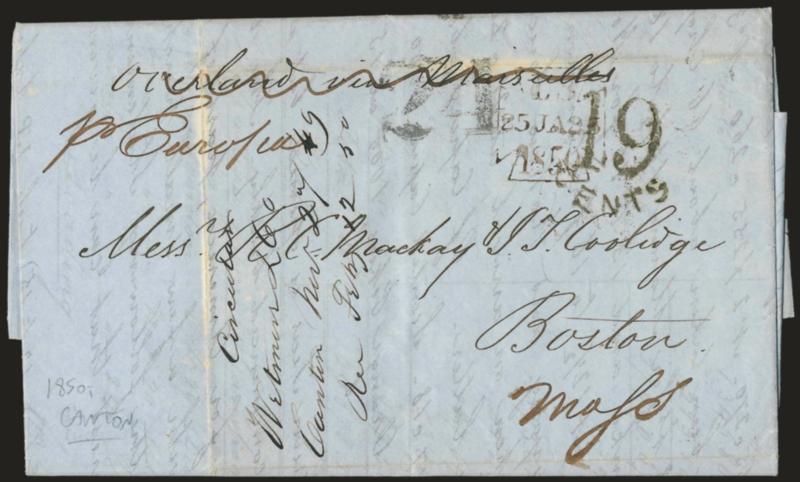 Overland via Marseilles
pr Europa
24
25 JA 25
1850
19
CENTS
Messrs R. C. Mackay & J. T. Coolidge
Boston
Mass
Circular
Wetmore & Co
Canton Nov 29/49
Rec Feby 12 50
1850,
CANTON